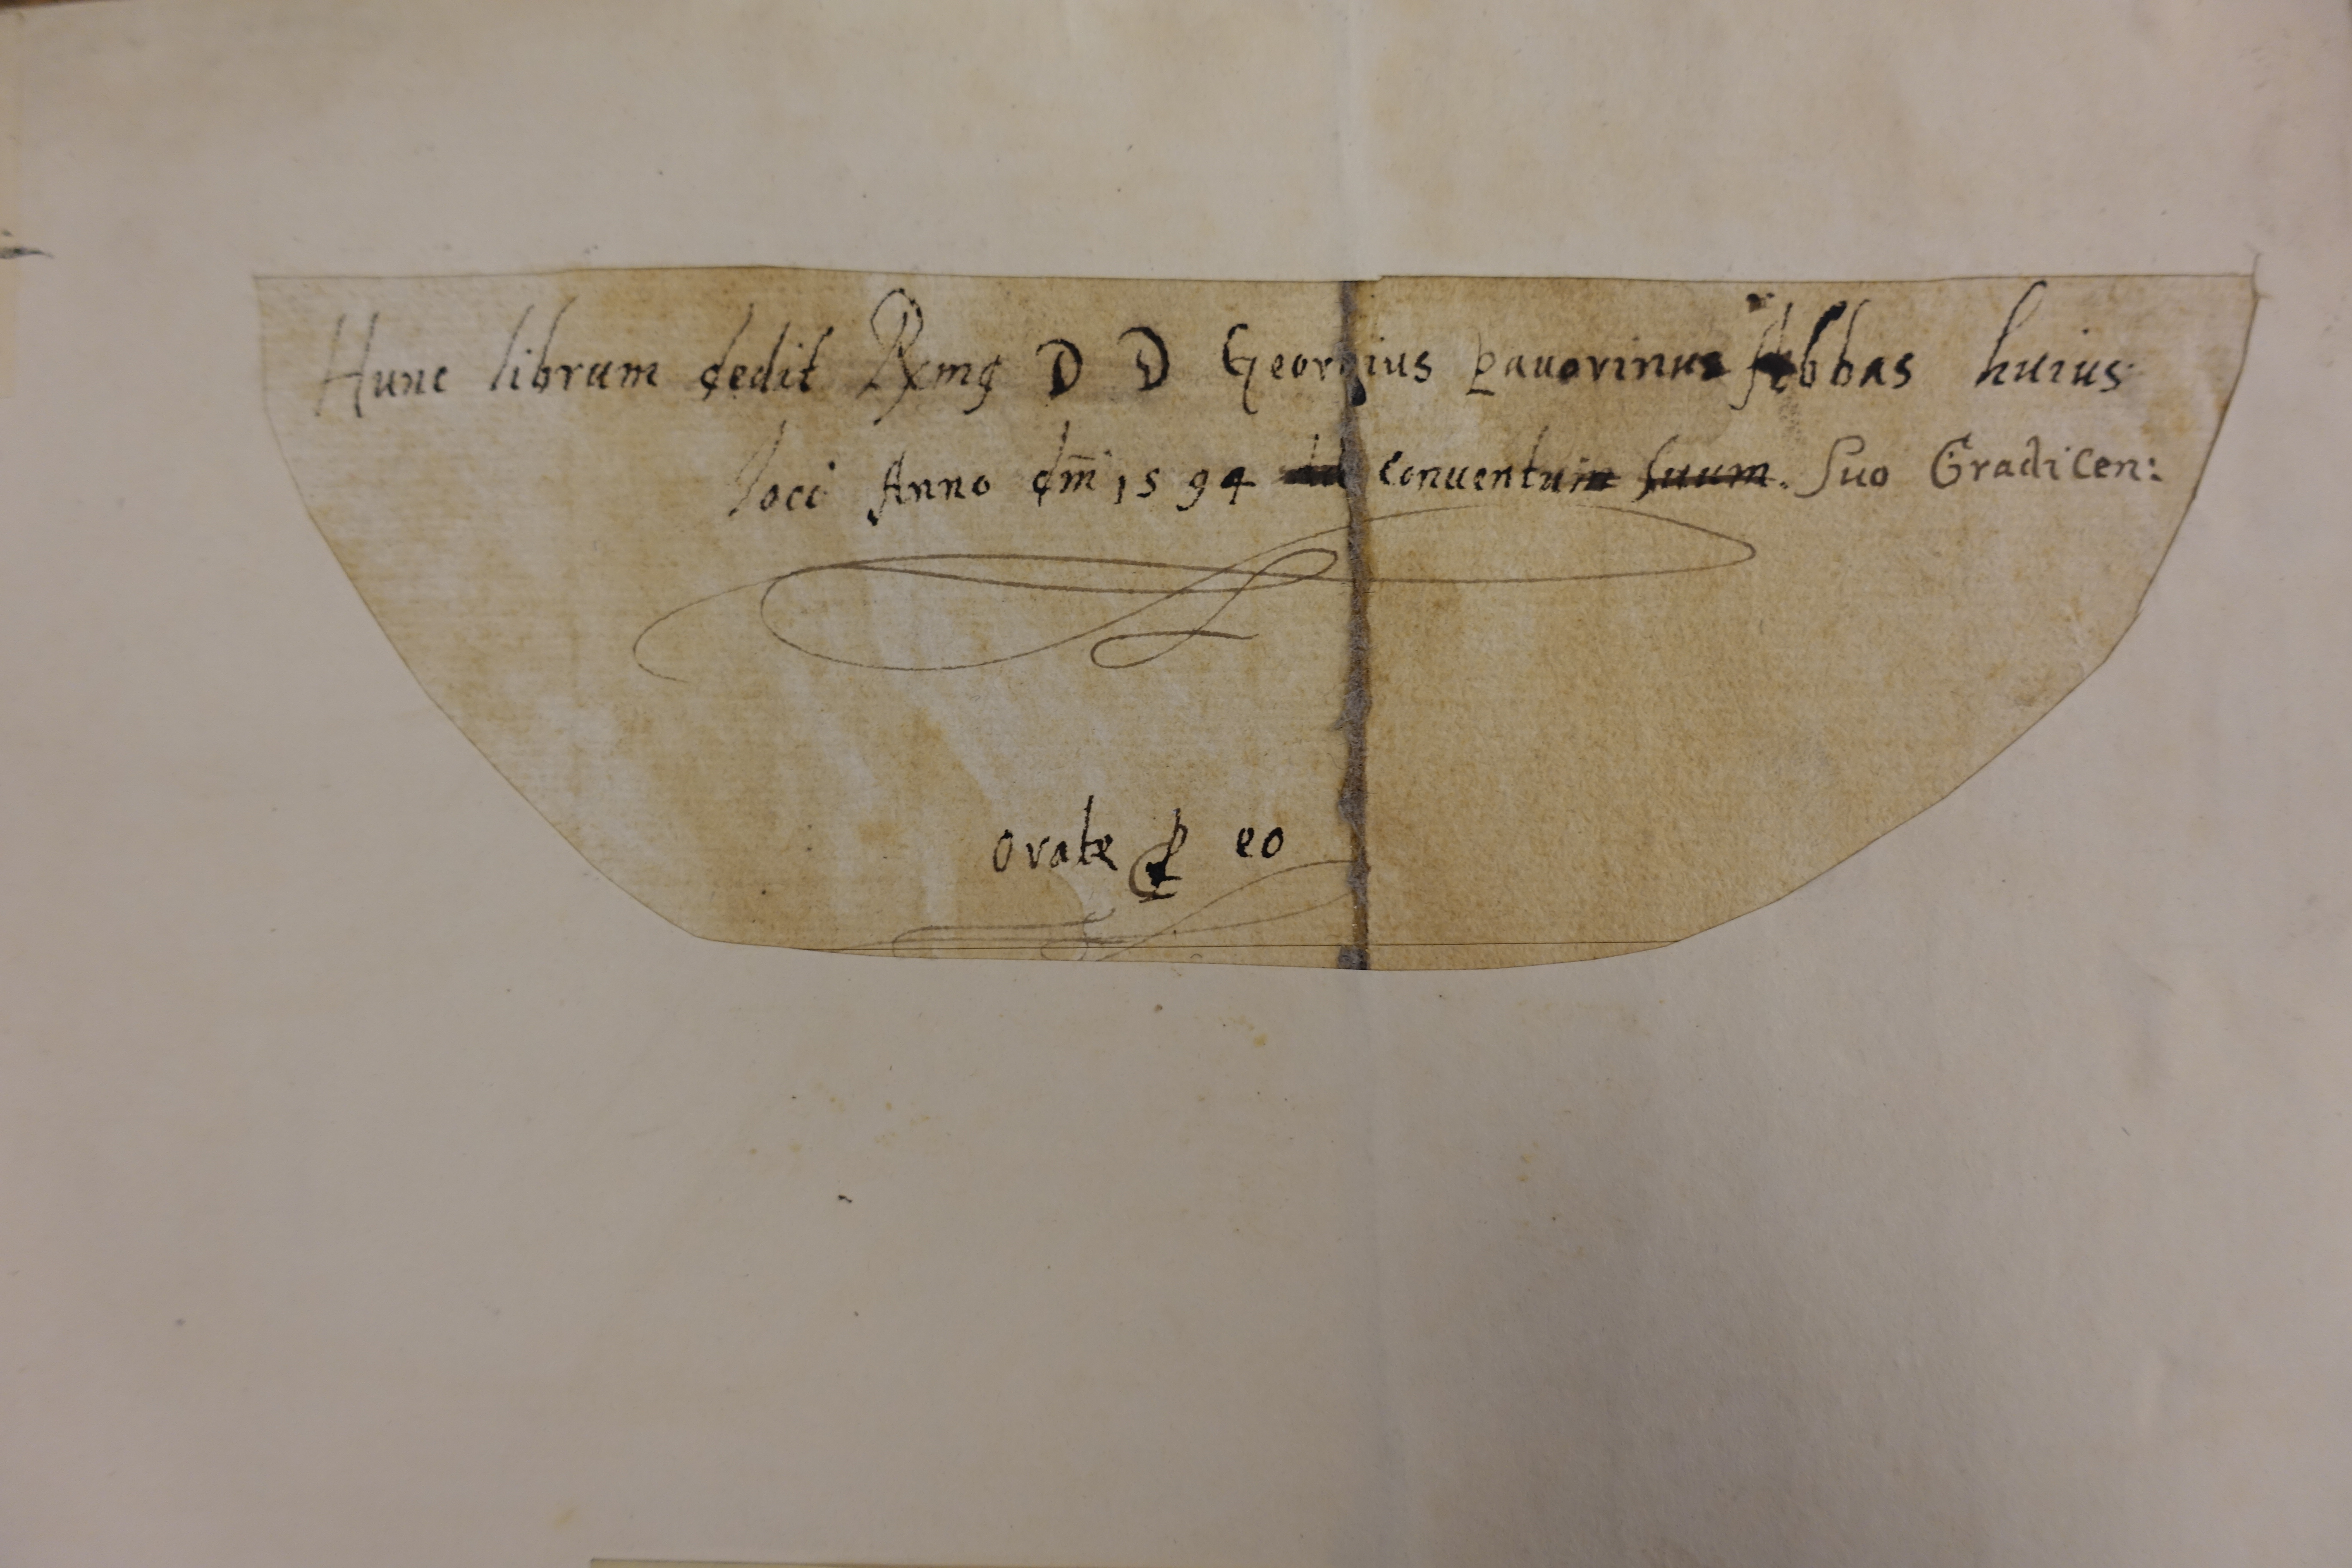 Hunc librum dedit Rxmꝯ D D Georgius Pauorinus Abbas huius
loci Anno dm̄i 1594 ad conuentum suum. Suo Gradicen:
orate ꝓ eo